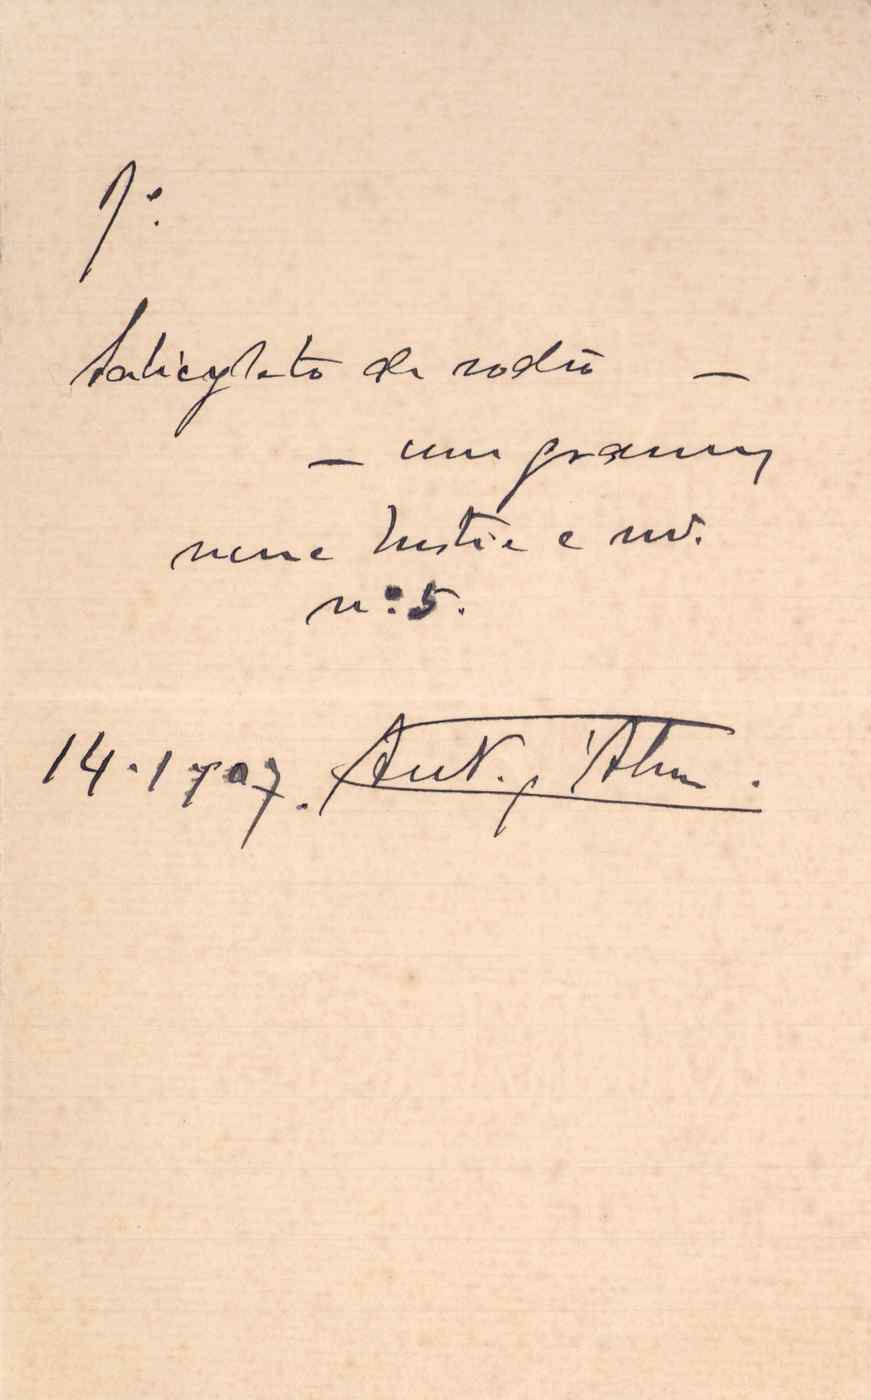 Pe.
Salicylato de sodio —
— um gramma
numa hostia e md.
nº 5.
14-1-907. Ant. d'Alm.